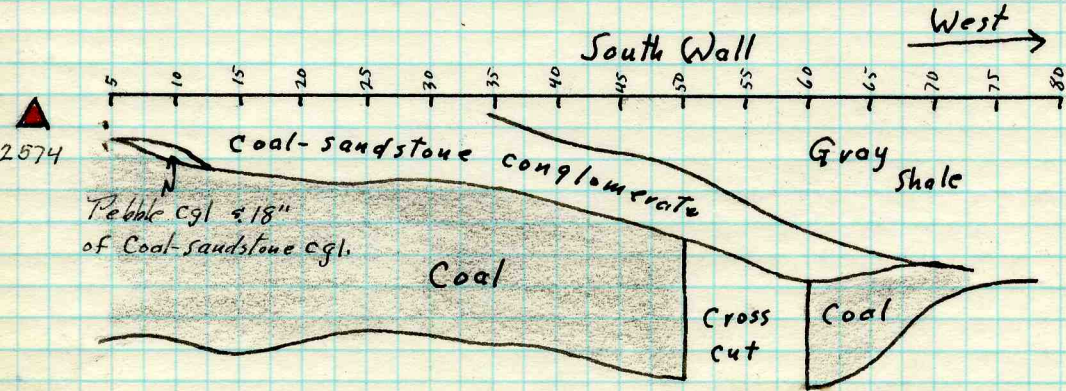 West
South Wall
5 10 15 20 25 30 35 40 45 50 55 60 65 70 75 80
2574
Coal-sandstone conglomerate
Gray
Shale
Pebble cgl & 18"
of Coal-sandstone cgl.
Coal
Cross
cut
Coal